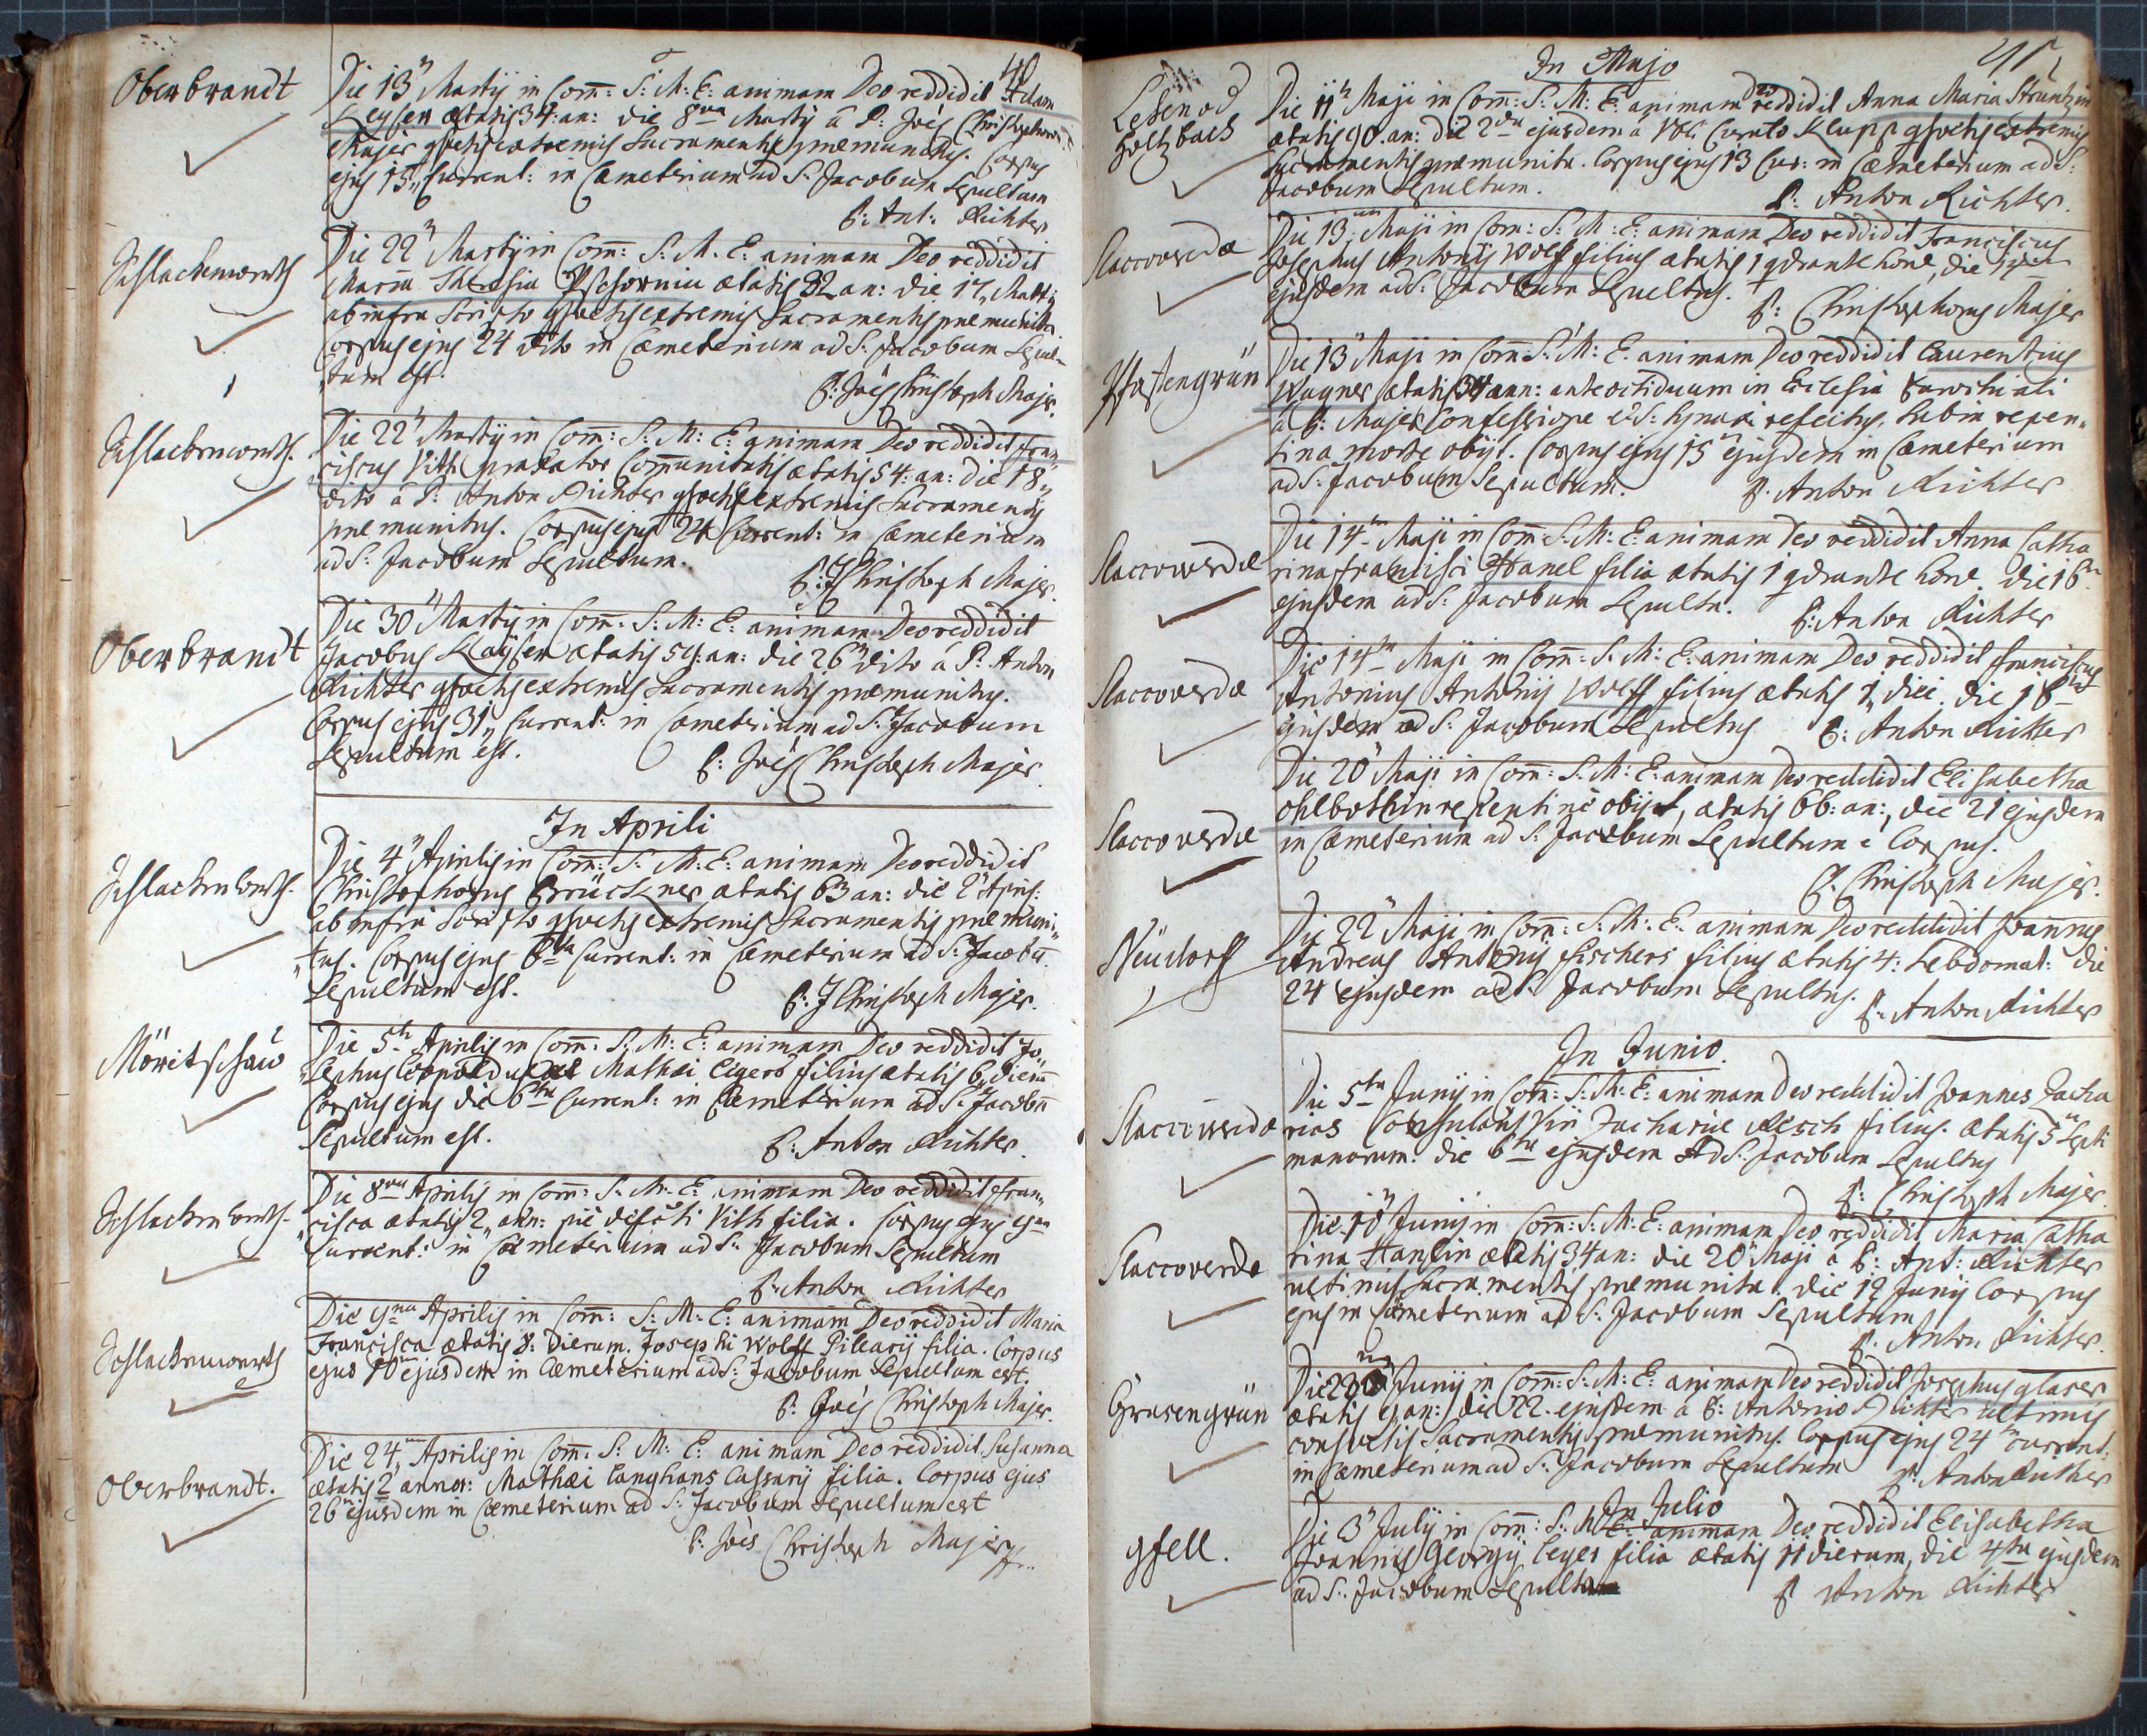 40
Oberbrandt
Die 13" Martij in Com̄: S: M: E: animam Deo reddidit Adam
Keyser ætatis 34: an: die 8va Martij â P: Joẽs Christophoro
Majer extremis Sacramentis præmunitus. Corpus
ejus 15" Current: in Cæmeterium ad S: Jacobum Sepultum
P: Ant: Richter
Schlackenwerth
Die 22" Martij in Com̄: S: M: E: animam Deo reddidit
Maria Theresia ætatis 82 an: die 17" Martij
ab infra Scripto extremis Sacramentis præmunita
Corpus ejus 24 dito in Cæmeterium ad S: Jacobum Sepul-
tum est.
P: Joẽs Christoph Majer
Schlackenwerth.
Die 22" Martij in Com̄: S: M: E: animam Deo reddidit Fran
ciscus Vith Communitatis ætatis 54: an: die 18"
dito â P: Anton Richter extremis Sacramentis
præmunitus. Corpus ejus 24 Current: in Cæmeterium
ad S: Jacobum Sepultum.
P: J Christoph Majer.
Oberbrandt
Die 30" Martij in Com̄: S: M: E: animam Deo reddidit
Jacobus Kaÿser ætatis 59: an: die 26" dito â P: Anton
Richter extremis Sacramentis præmunitus.
Corpus ejus 31" Current: in Cæmeterium ad S: Jacobum
Sepultum est.
P: Joẽs Christoph Majer.
In Aprili
Schlackenwerth.
Die 4" Aprilis in Com̄: S: M: E: animam Deo reddidit
Christophorus Brückner ætatis 63 an: die 2" Apris:
ab infra Scripto extremis Sacramentis præmuni-
tus. Corpus ejus 6ta Current: in Cæmeterium ad S: Jacobū
Sepultum est.
P: J Christoph Majer.
Möritschau
Die 5ta Aprilis in Com̄: S: M: E: animam Deo reddidit Jo-
sephus Mathæi filius ætatis 6 dierū
Corpus ejus die 6ta Current: in Cæmeterium ad S: Jacobū
Sepultum est.
P: Anton Richter.
Schlackenwerth.
Die 8va Aprilis in Com̄: S: M: E: animam Deo reddidit Fran-
cisca ætatis 2" ann: Vith filia. Corpus ejus 9na
Current: in Cæmeterium ad S: Jacobum Sepultum
P: Anton Richter
Schlackenwerth
Die 9na Aprilis in Com̄: S: M: E: animam Deo reddidit Maria
Francisca ætatis 8: dierum. Josephi Wolff Pilearij filia. Corpus
ejus 10 ejusdem in Cæmeterium ad S: Jacobum Sepultum est.
P: Joẽs Christoph Majer.
Oberbrandt.
Die 24 Aprilis in Com̄: S: M: E: animam Deo reddidit Susanna
ætatis 2 annor: Mathæi Langhans filia. Corpus ejus
26 ejusdem in Cæmeterium ad S: Jacobum Sepultum est
P: Joẽs Christoph Majer
In Majo
Holtzbach
Die 11" Maji in Com̄: S: M: E: animam Deo reddidit Anna Maria Struntzin
ætatis 90. an: die 2da ejusdem â Curato Klupp extremis
Sacramentis præmunita. Corpus ejus 13 Cur: in Cæmeterium ad S:
Jacobum Sepultum.
P: Anton Richter.
Slaccowerdæ
Die 13 Maji in Com: S: M: E: animam Deo reddidit Franciscus
Josephus Antonij Wolff filius ætatis 1 qdrante horæ, die
ejusdem ad S: Jacobum Sepultus.
P: Christophorus Majer
Pfaffengrün
Die 13" Maji in Com̄: S: M: E. animam Deo reddidit Laurentius
Wagner ætatis 34 ann: ante octiduum in Ecclesia Parochiali
â P: Majer Confessione et S: Synaxi refectus, repen-
tina morte obijt. Corpus ejus 15" ejusdem in Cæmeterium
ad S: Jacobum Sepultum.
P. Anton Richter
Slaccowerdæ
Die 14ta Maji in Com̄: S: M: E: animam Deo reddidit Anna Catha
rina Francisci Hanel filia ætatis 1 qdrante horæ. die 16ta
ejusdem ad S: Jacobum Sepulta.
P: Anton Richter
Slaccowerdæ
Die 14ta Maji in Com̄: S: M: E: animam Deo reddidit Franciscus
Antonius Antonij Wolff filius ætatis 1 diei. die
ejusdem ad S: Jacobum Sepultus P: Anton Richter
Slaccowerdæ
Die 20" Maji in Com̄: S: M: E: animam Deo reddidit Elisabetha
repentine obijt, ætatis 66: an:, die 21 ejusdem
in Cæmeterium ad S: Jacobum Sepultum e Corpus.
P. Christoph Majer.
Neudorff
Die 22" Maji in Com̄: S: M: E: animam Deo reddidit Joannes
Andreas Antonij Fischers filius ætatis 4: Hebdomat: die
24 ejusdem ad S: Jacobum Sepultus.
P: Anton Richter
In Junio.
Slaccowerdæ
Die 5ta Junij in Com̄: S: M: E: animam Deo reddidit Joannes Zacha
rias Consularis Viri Zachariæ Resch filius. ætatis 5 Septi
manarum. die 6ta ejusdem ad S: Jacobum Sepultus
P: Christoph Majer.
Slaccowerdæ
Die 10" Junij in Com̄: S: M: E: animam Deo reddidit Maria Catha
rina Hanlin ætatis 34 an: die 20" Maji â P: Ant: Richter
ultimis Sacramentis præmunita. die 12 Junij Corpus
ejus in Cæmeterium ad S: Jacobum Sepultum
P. Anton Richter.
Grasengrün
Die 23 Junij in Com̄: S: M: E: animam Deo reddidit Josephus glaser
ætatis 9 an: die 22. ejusdem â P: Antonio Richter ultimis
consuetis Sacramentis præmunitus. Corpus ejus 24ta current:
in Cæmeterium ad S: Jacobum Sepultum P. Anton Richter
In Julio
gfell.
Die 3" Julij in Com̄: S: M: E: animam Deo reddidit Elisabetha
Joannis Georgij Leyer filia ætatis 11 dierum, die 4ta ejusdem
ad S: Jacobum Sepulta
P Anton Richter